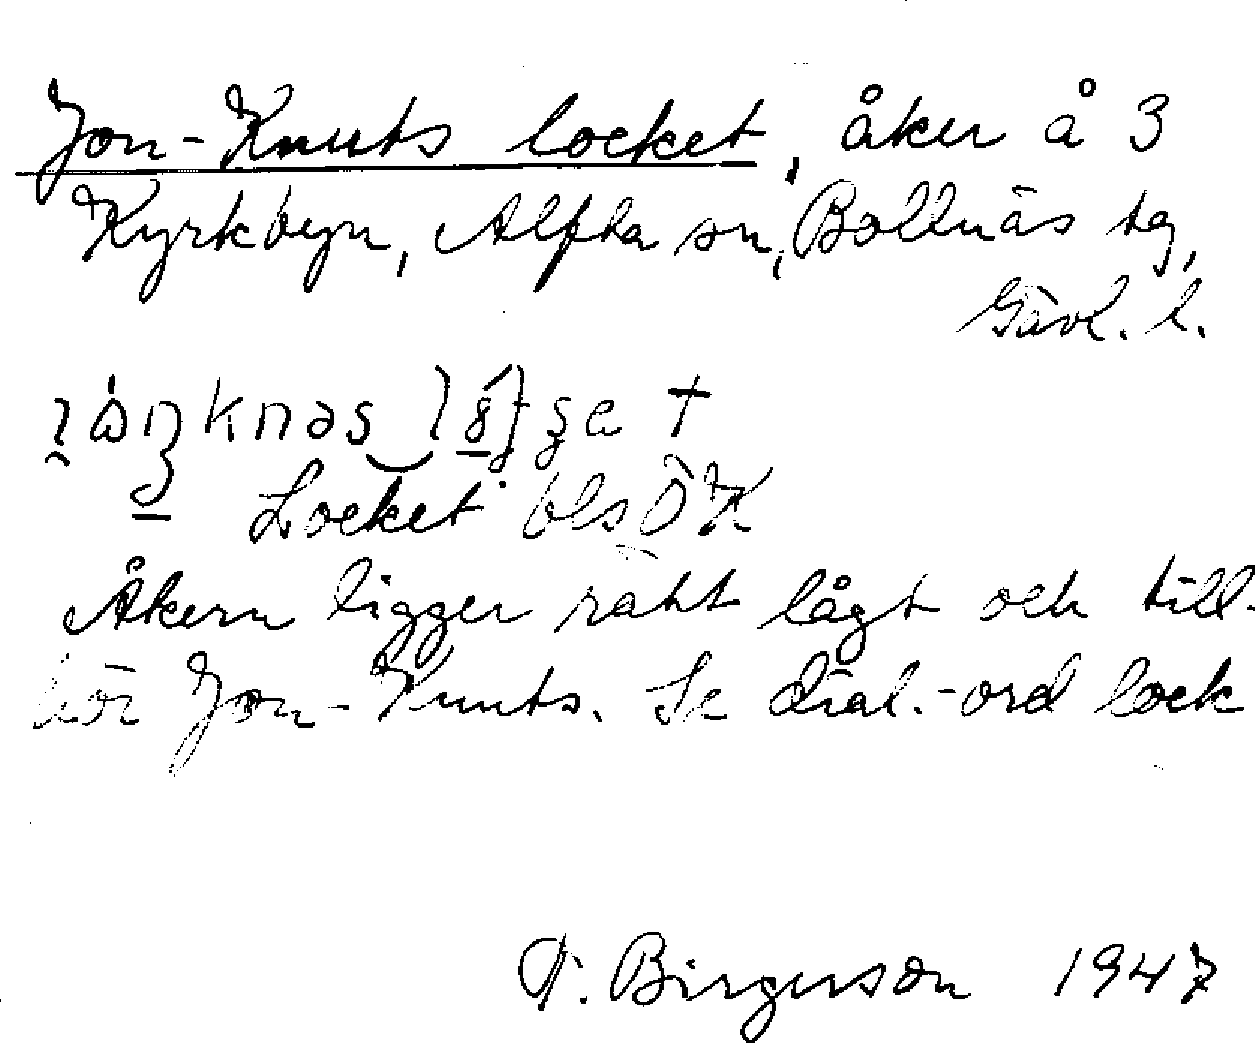 Jon-Knuts locket, åker å 3
Kyrkbyn, Alfta sn, Bollnäs tg,
Gävl. l.
Locket bls ÖK
Åkern ligger rätt lågt och till-
hör Jon-Knuts. Se dial.-ord lock
Birgerson 1947